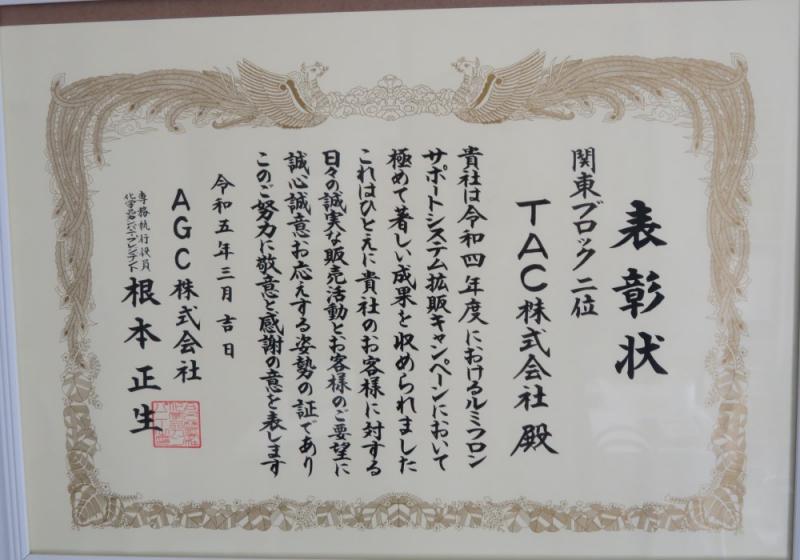 表彰状
関東ブロック二位
TAC株式会社 殿
貴社は令和四年度におけるルミフロン
サポートシステム拡販キャンペーンにおいて
極めて著しい成果を収められました
これはひとえに貴社のお客様に対する
日々の誠実な販売活動とお客様のご要望に
誠心誠意お応えする姿勢の証であり
このご努力に敬意と感謝の意を表します
令和五年三月吉日
AGC株式会社
専務執行役員
化学品カンパニープレジデント
根本正生